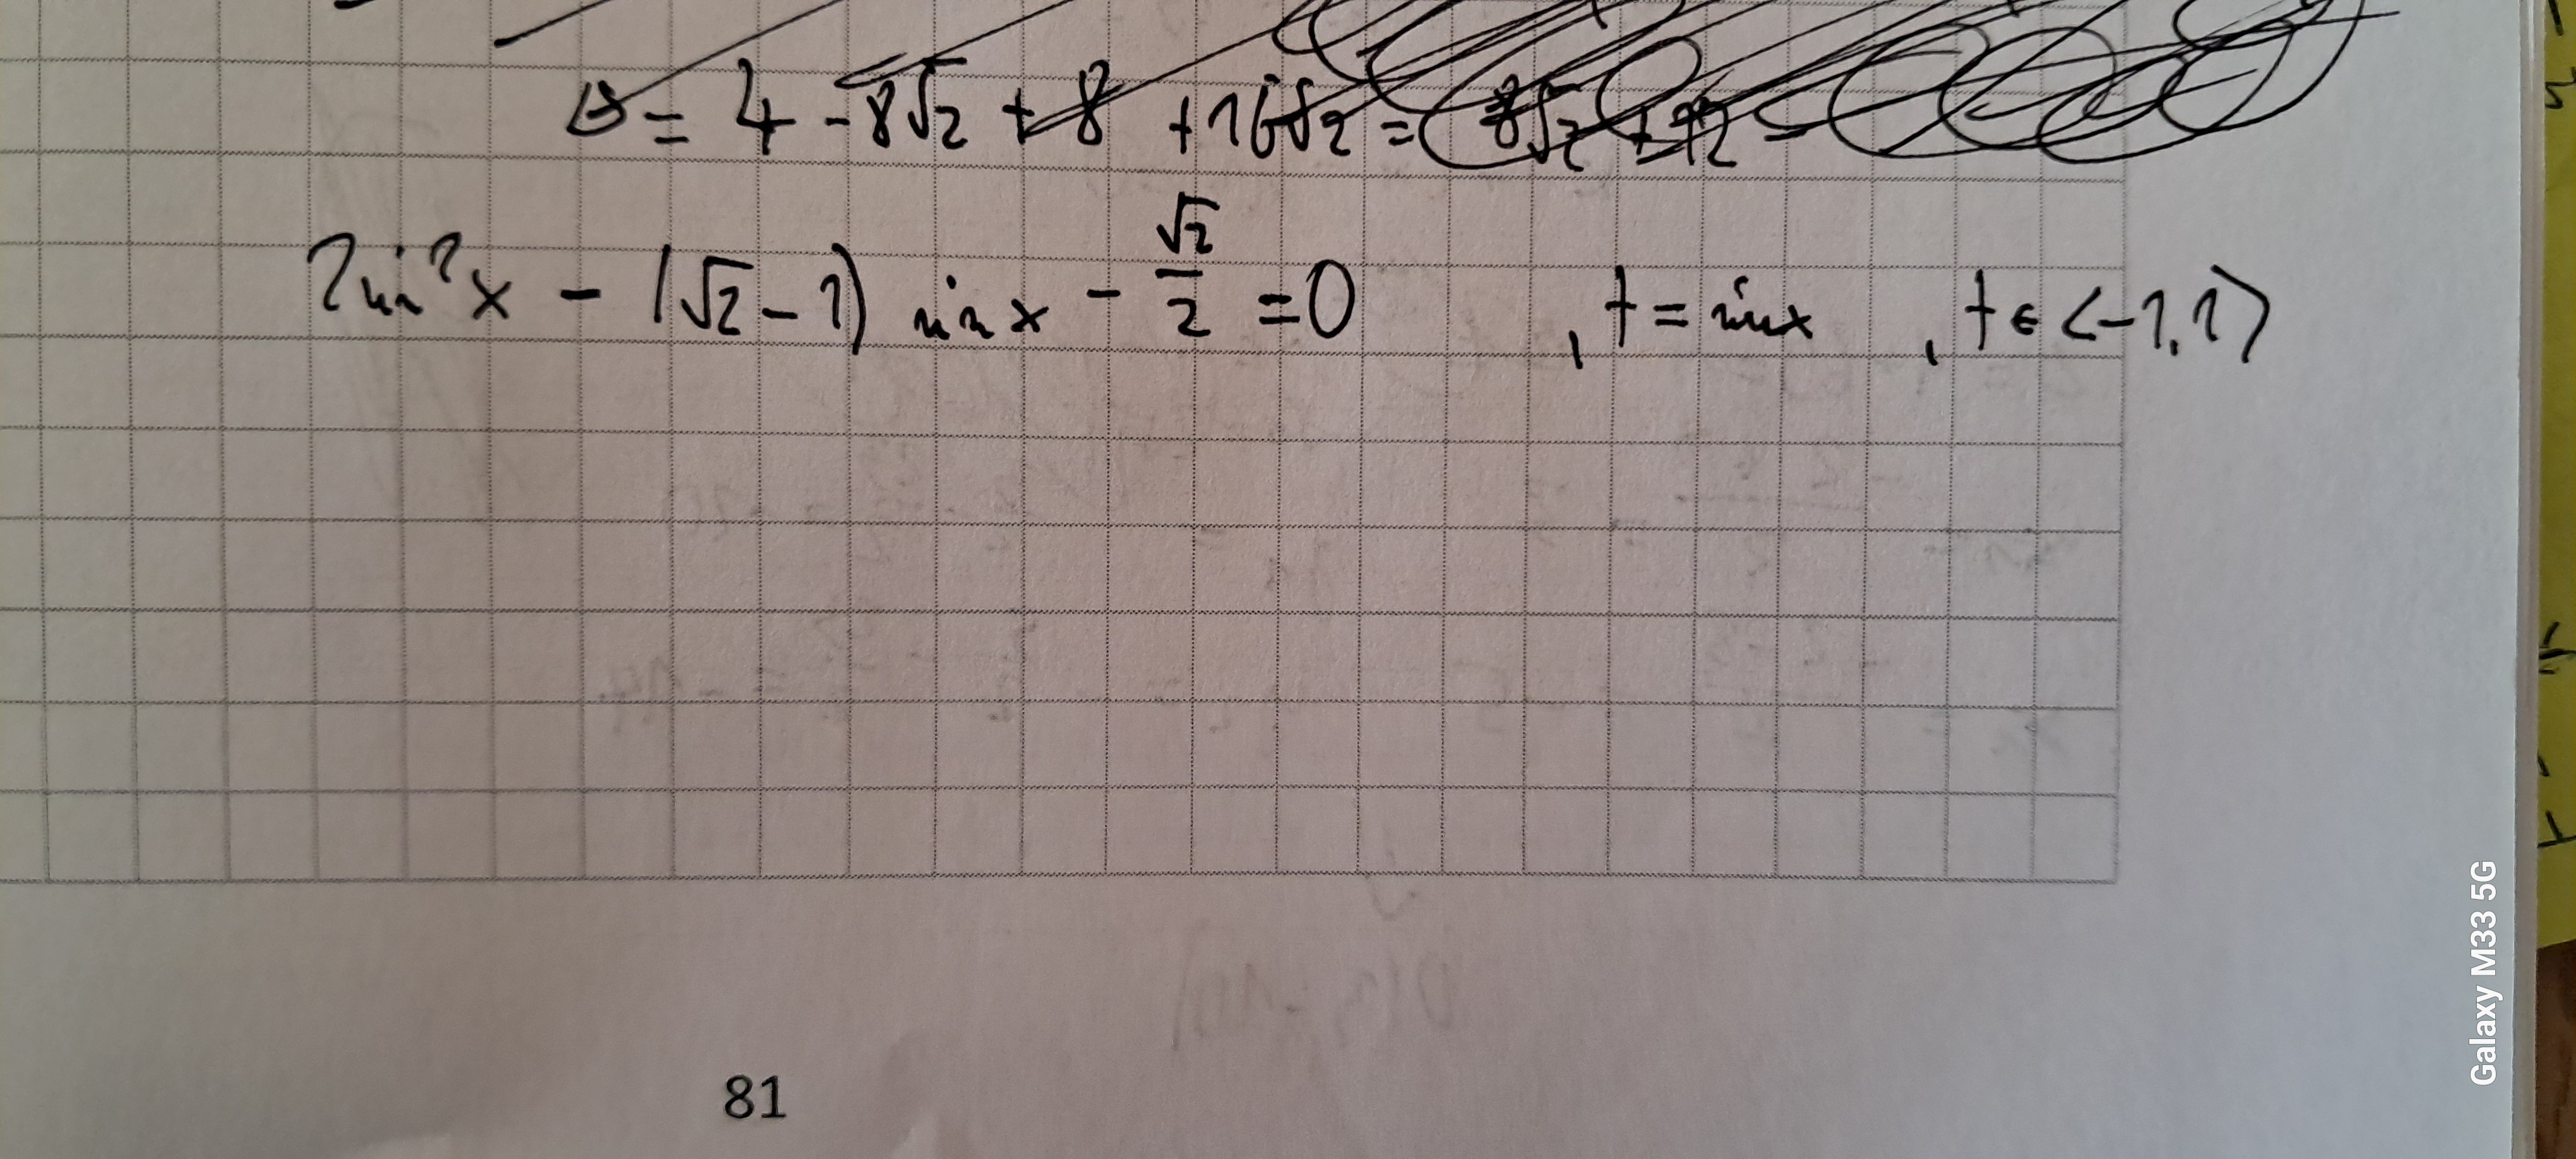 Δ = 4 - 8√2 + 8 + 16√2 = 8√2 + 12 =
2sin²x - (√2 - 1) sin x - √2/2 = 0 , t = sinx , t ∈ <-1,1>
81
Galaxy M33 5G